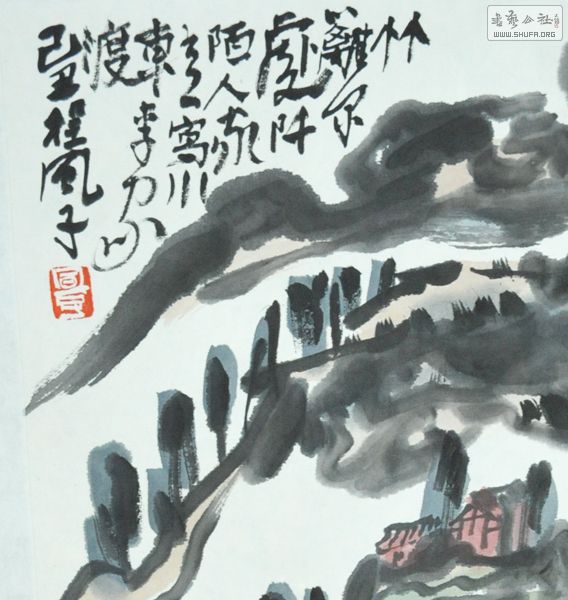 竹
籬
處阡
陌人家
之一寫川
東李力
渡
己丑桂風子
書藝公社
WWW.SHUFA.ORG